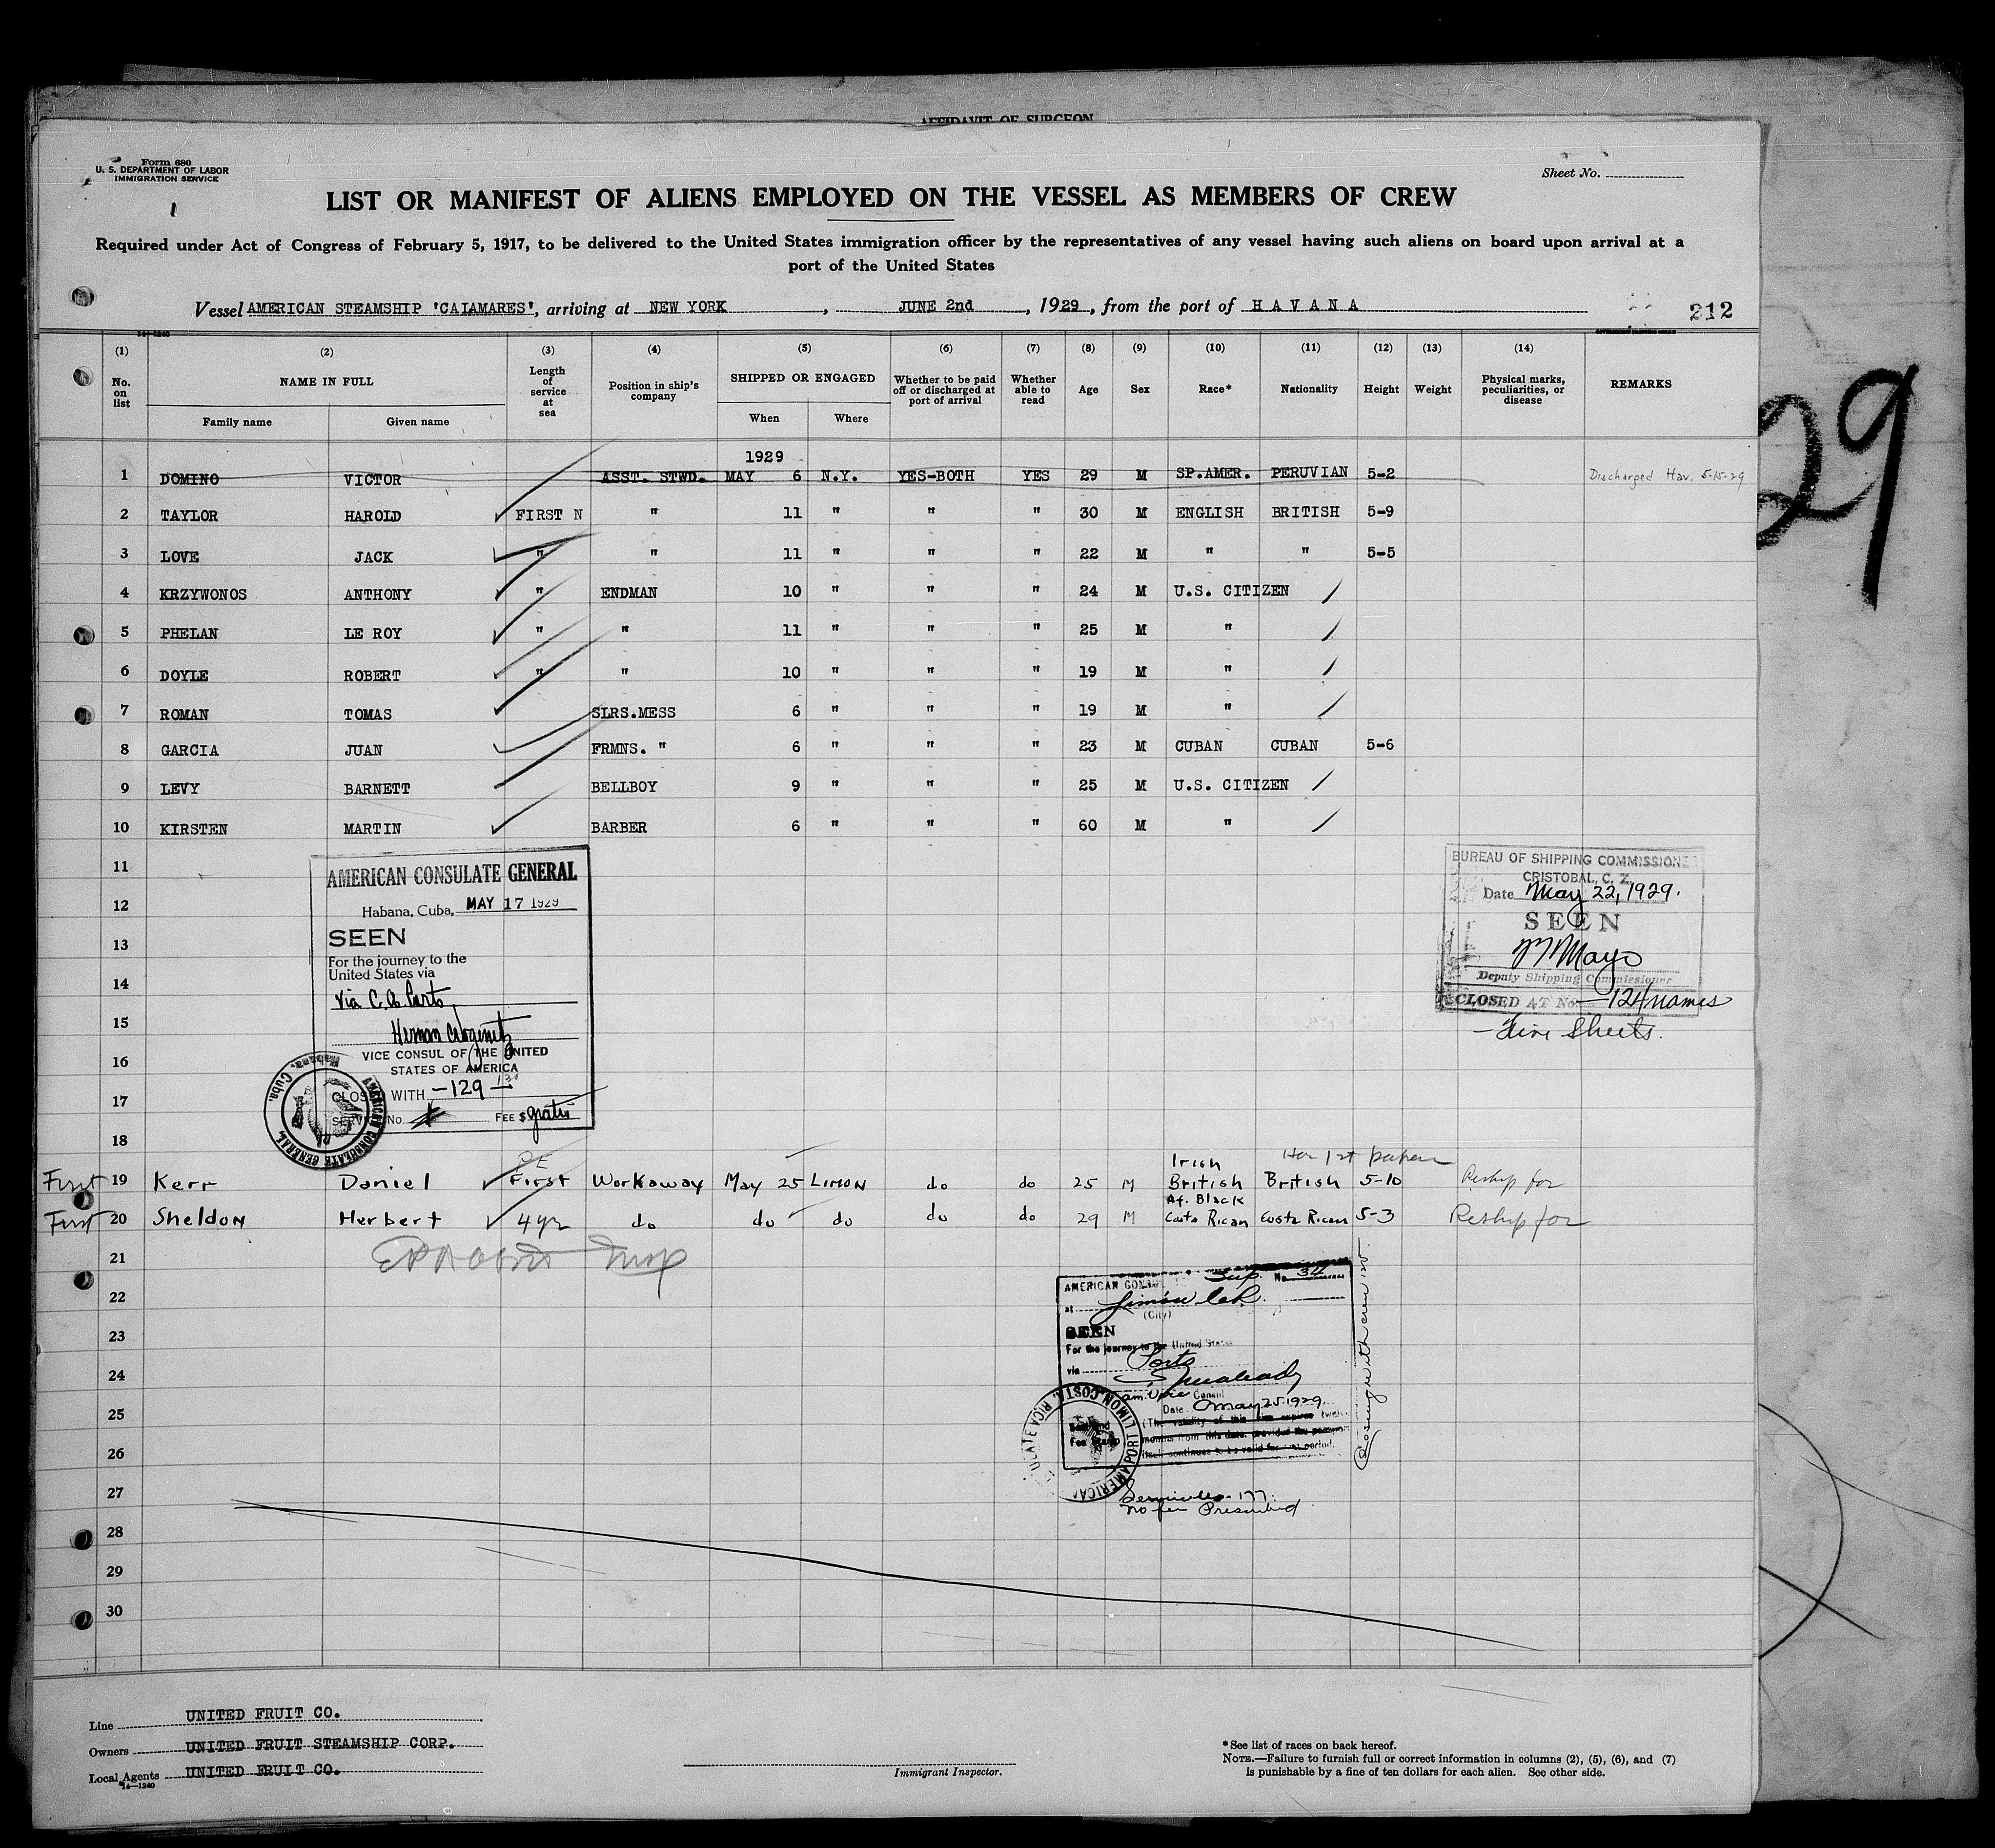 AFFIDAVIT OF SURGEON
Form 680
U. S. DEPARTMENT OF LABOR
IMMIGRATION SERVICE
1
Sheet No.
LIST OR MANIFEST OF ALIENS EMPLOYED ON THE VESSEL AS MEMBERS OF CREW
Required under Act of Congress of February 5, 1917, to be delivered to the United States immigration officer by the representatives of any vessel having such aliens on board upon arrival at a
port of the United States
Vessel AMERICAN STEAMSHIP 'CALAMARES', arriving at NEW YORK, JUNE 2nd, 1929, from the port of HAVANA
212
29
14-1240
(1) (2) (3) (4) (5) (6) (7) (8) (9) (10) (11) (12) (13) (14)
No. on list NAME IN FULL Family name Given name Length of service at sea Position in ship's company SHIPPED OR ENGAGED When Where Whether to be paid off or discharged at port of arrival Whether able to read Age Sex Race* Nationality Height Weight Physical marks, peculiarities, or disease REMARKS
1929
1 DOMINO VICTOR ASST. STWD. MAY 6 N.Y. YES-BOTH YES 29 M SP.AMER. PERUVIAN 5-2 Discharged Hav. 5-15-29
2 TAYLOR HAROLD FIRST N " 11 " " " 30 M ENGLISH BRITISH 5-9
3 LOVE JACK " " 11 " " " 22 M " " 5-5
4 KRZYWONOS ANTHONY " ENDMAN 10 " " " 24 M U.S. CITIZEN
5 PHELAN LE ROY " " 11 " " " 25 M "
6 DOYLE ROBERT " " 10 " " " 19 M "
7 ROMAN TOMAS SLRS.MESS 6 " " " 19 M "
8 GARCIA JUAN FRMNS. " 6 " " " 23 M CUBAN CUBAN 5-6
9 LEVY BARNETT BELLBOY 9 " " " 25 M U.S. CITIZEN
10 KIRSTEN MARTIN BARBER 6 " " " 60 M "
11
12
13
14
15
16
17
18
AMERICAN CONSULATE GENERAL
Habana, Cuba, MAY 17 1929
SEEN
For the journey to the
United States via
via C.A. Ports
VICE CONSUL OF THE UNITED
STATES OF AMERICA
CLOSED WITH -129-
SERVICE No. FEE $ gratis
AMERICAN CONSULATE GENERAL, Habana, Cuba.
BUREAU OF SHIPPING COMMISSIONER
CRISTOBAL, C. Z.
Date May 22, 1929.
SEEN
Mayo
Deputy Shipping Commissioner
CLOSED AT No. -124 names
-Five Sheets.
First 19 Kerr Daniel First Workaway May 25 LIMON do do 25 M Irish British British 5-10 Has 1st papers Reship for
First 20 Sheldon Herbert 4 yr do do do do do 29 M Af. Black Costa Rican Costa Rican 5-3 Reship for
21
22
23
24
25
26
27
28
29
30
AMERICAN CONSUL
Sup. No.
at Limon C.R.
(City)
SEEN
For the journey to the United States
via Ports
Am. Vice Consul
Date May 25 1929
(The validity of this visa expires twelve
months from this date, provided the passport
itself continues to be valid for that period.
Closing with crew 125
AMERICAN CONSULATE PORT LIMON, COSTA RICA
Service No. 177.
No fee Prescribed
Line UNITED FRUIT CO.
Owners UNITED FRUIT STEAMSHIP CORP.
Local Agents UNITED FRUIT CO.
14-1240
Immigrant Inspector.
*See list of races on back hereof.
NOTE.—Failure to furnish full or correct information in columns (2), (5), (6), and (7)
is punishable by a fine of ten dollars for each alien. See other side.